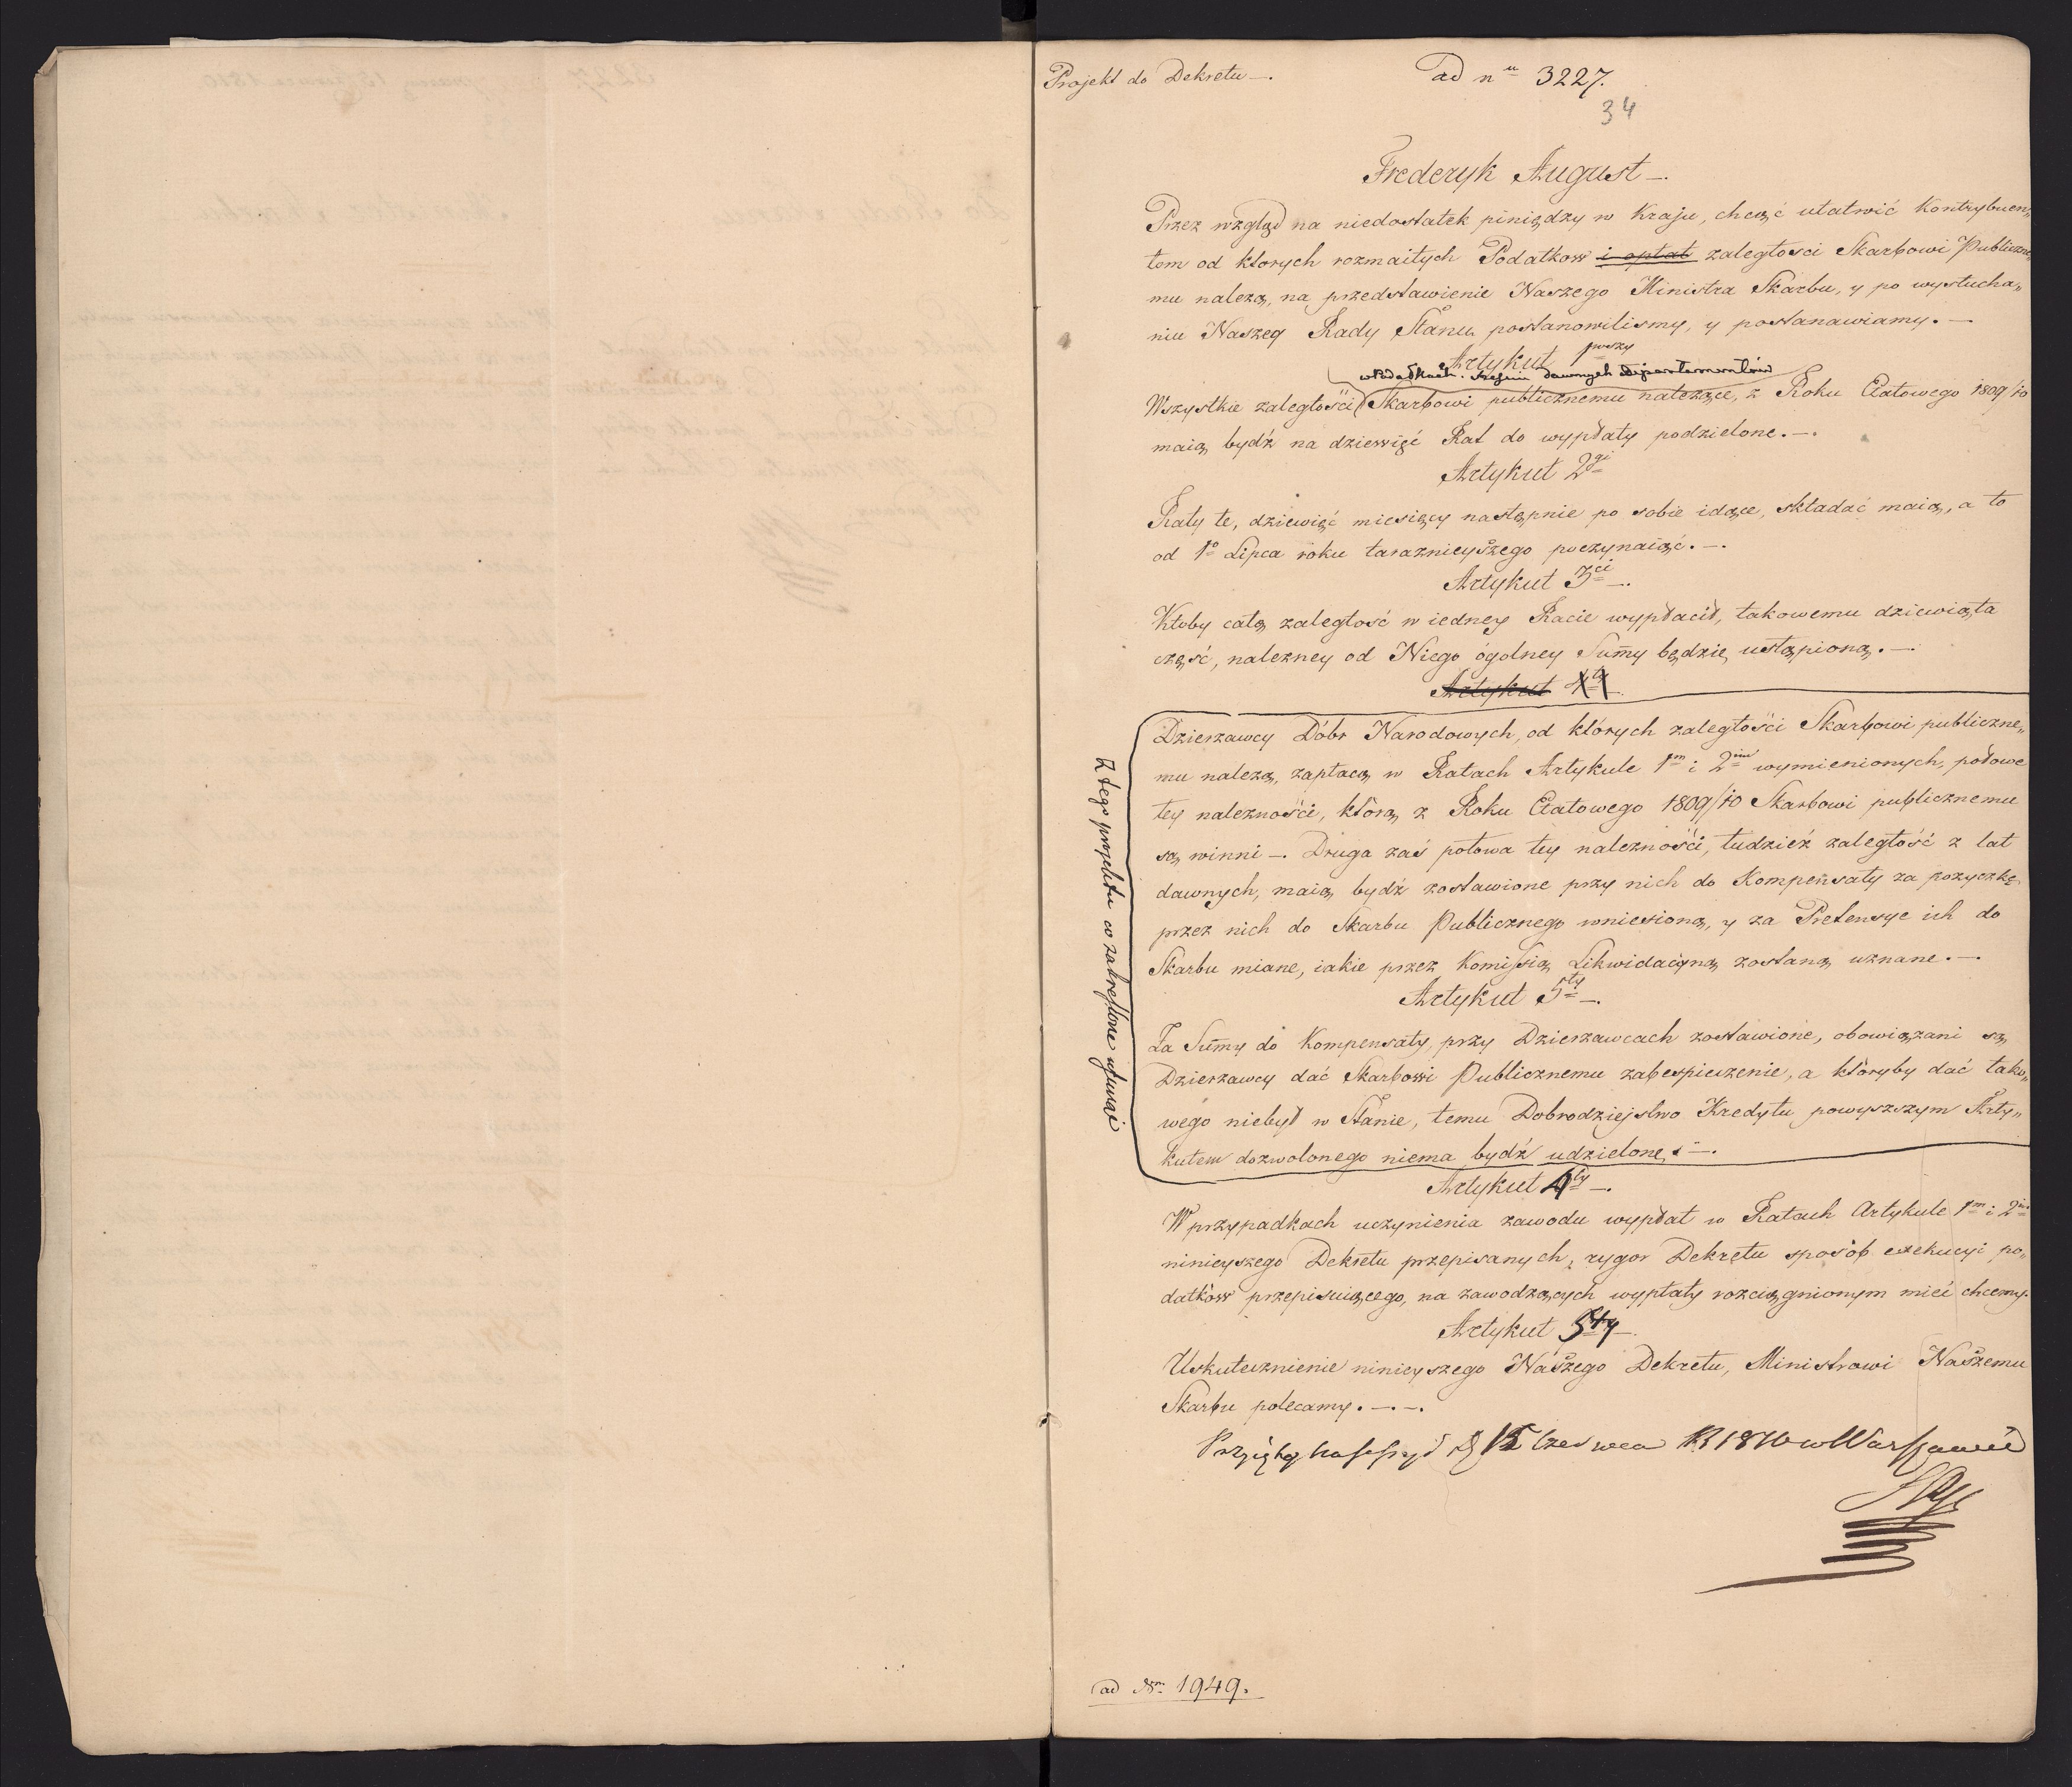 Projekt do Dekretu —.
ad nu 3227.
34
Frederyk August —.
Przez wzgląd na niedostatek piniędzy w Kraju, chcąć ułatwić Kontrybuen„
tom od ktorych rozmaitych Podatkow i opłat zaległosci Skarbowi Publiczne„
mu należą, na przedstawienie Naszego Ministra Skarbu, y po wysłucha„
niu Naszey Rady Stanu postanowilismy, y postanawiamy. —
Artykuł pwszy
w Podatkach sześciu dawnych Departamentów
Wszystkie zaległości Skarbowi publicznemu należące, z Roku Etatowego 1809/10
maią bydź na dziewięć Rat do wypłaty podzielone. —.
Artykuł 2gi
Raty te, dziewięć miesięcy następnie po sobie idące, składać maią, a to
od 1o Lipca roku taraznieyszego poczynaiąć. —.
Artykuł 3ci —.
Ktoby całą zaległość w iedney Racie wypłacił, takowemu dziewiąta
część, należney od Niego ógolney Sumy będzie ustąpioną. —.
Artykuł 4ty
Dzierzawcy Dóbr Narodowych, od których zaległości Skarbowi publiczne„
mu należą, zapłacą w Ratach Artykule 1m i 2im wymienionych, połowe
tey należności, którą z Roku Etatowego 1809/10 Skarbowi publicznemu
są winni —. Druga zaś połowa tey należności, tudzież zaległość z lat
dawnych, maią bydź zostawione przy nich do Kompensaty za pożyczkę
przez nich do Skarbu Publicznego wniesioną, y za Pretensye ich do
Skarbu miane, iakie przez Komissią Likwidacyiną zostaną uznane. —.
Artykuł 5ty —.
Za Sumy do Kompensaty, przy Dzierzawcach zostawione, obowiązani są
Dzierzawcy dać Skarbowi Publicznemu zabespieczenie, a któryby dać tako„
wego niebył w Stanie, temu Dobrodziejstwo Kredytu powyższym Arty„
kułem dozwolonego niema bydź udzielone. —.
Z tego projektu co zakreslone usunąć
Artykuł 4ty —.
W przypadkach uczynienia zawodu wypłat w Ratach Artykule 1m i 2im
ninieyszego Dekretu przepisanych, rygor Dekretu sposób exekucyi po„
datków przepisuiącego, na zawodzących wypłaty rozciągnionym mieć chcemy.
Artykuł 5ty —.
Uskutecznienie ninieyszego Naszego Dekretu, Ministrowi Naszemu
Skarbu polecamy. —.—.
Przyięty na sessyi d 15 Czerwca R 1810 w Warszawie
ad Nm 1949.